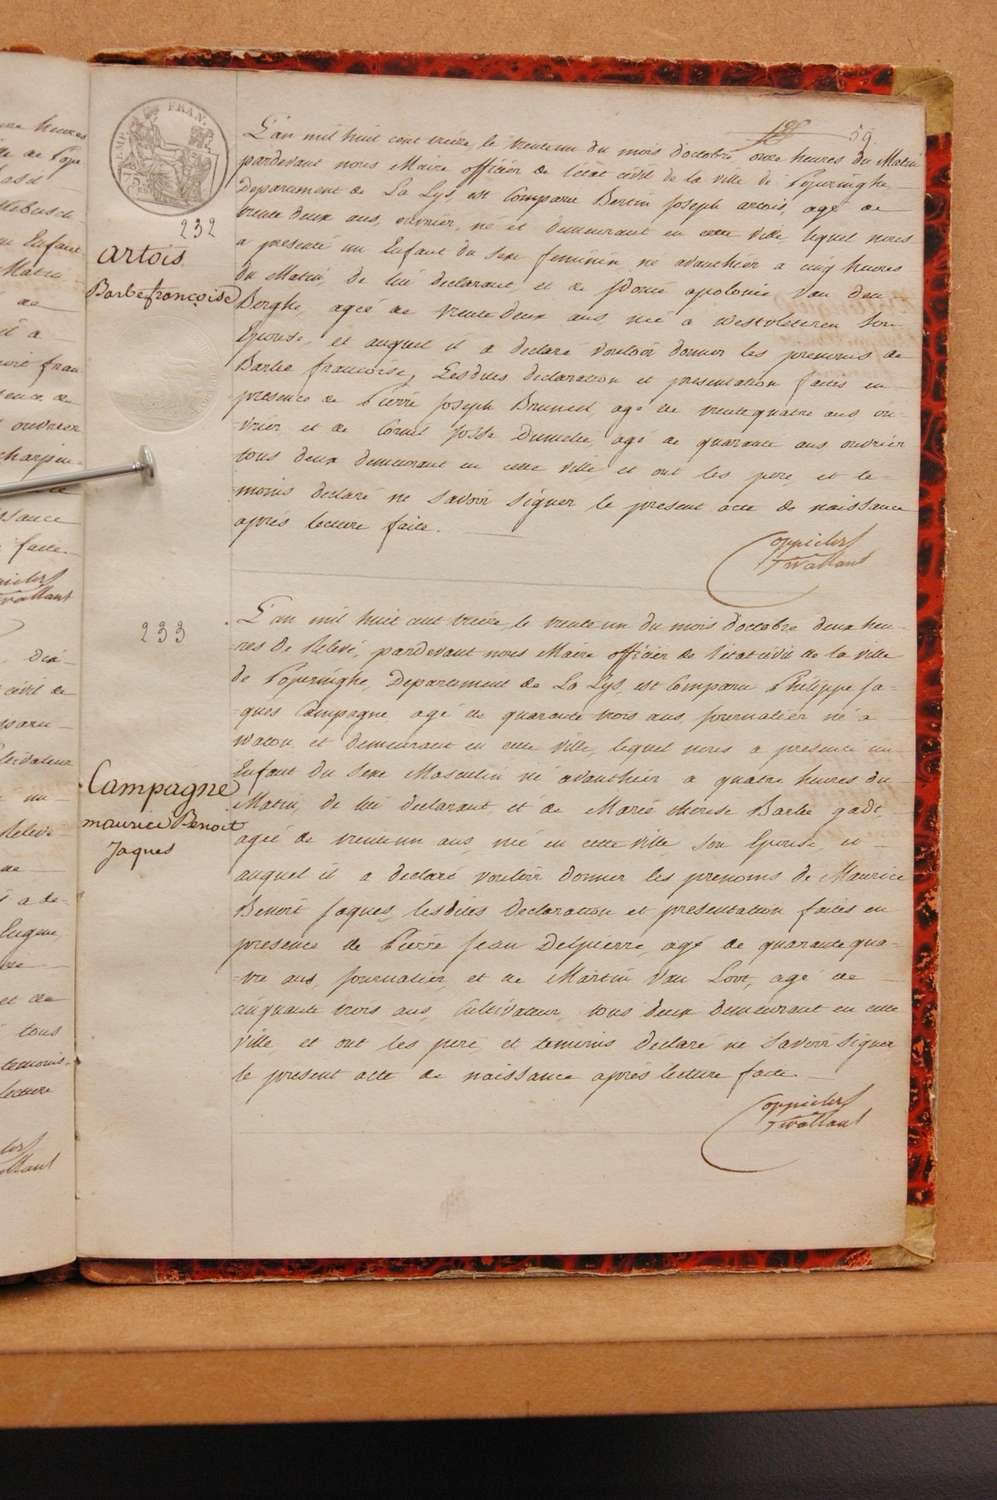 EMP. FRAN.
59
232
artois
Barbe françoise
L'an mil huit cent treize, le trente un du mois d'octobre, onze heures du Matin
pardevant nous Maire officier de l'état civil de la ville de Poperinghe
Departement de La Lys, est Comparu Bertin Joseph artois, agé de
trente deux ans, ouvrier, né et demeurant en cette ville lequel nous
a presenté un Enfant du sexe feminin né avanthier a cinq heures
du Matin, de lui declarant et de apolonie Van den
Berghe, agée de trente deux ans née a westvleteren son
Epouse, et auquel il a declaré vouloir donner les prenoms de
Barbe francoise, Lesdites declaration et presentation faites en
presence de Pierre Joseph agé de trente quatre ans ou-
vrier et de agé de quarante ans ouvrier
tous deux demeurant en cette ville et ont les pere et te-
moins declaré ne savoir signer le present acte de naissance
après lecture faite.
233
Campagne
maurice Benoit
Jaques
L'an mil huit cent treize, le trente un du mois d'octobre deux heu-
res de Relevé, pardevant nous Maire officier de l'état civil de la ville
de Poperinghe, Departement de La Lys, est Comparu Philippe Ja-
ques Campagne agé de quarante trois ans, Journalier né a
watou et demeurant en cette ville, lequel nous a presenté un
Enfant du sexe Masculin né avanthier a quatre heures du
Matin, de lui declarant et de Marie therese Barbe
agée de trente un ans, née en cette ville son Epouse et
auquel il a declaré vouloir donner les prenoms de Maurice
Benoit Jaques, lesdites declaration et presentation faites en
presence de Pierre Jean Delpierre, agé de quarante qua-
tre ans, Journalier, et de Martin Van Loot, agé de
cinquante trois ans, Cultivateur, tous deux demeurant en cette
ville et ont les pere et temoins declaré ne savoir signer
le present acte de naissance apres lecture faite.